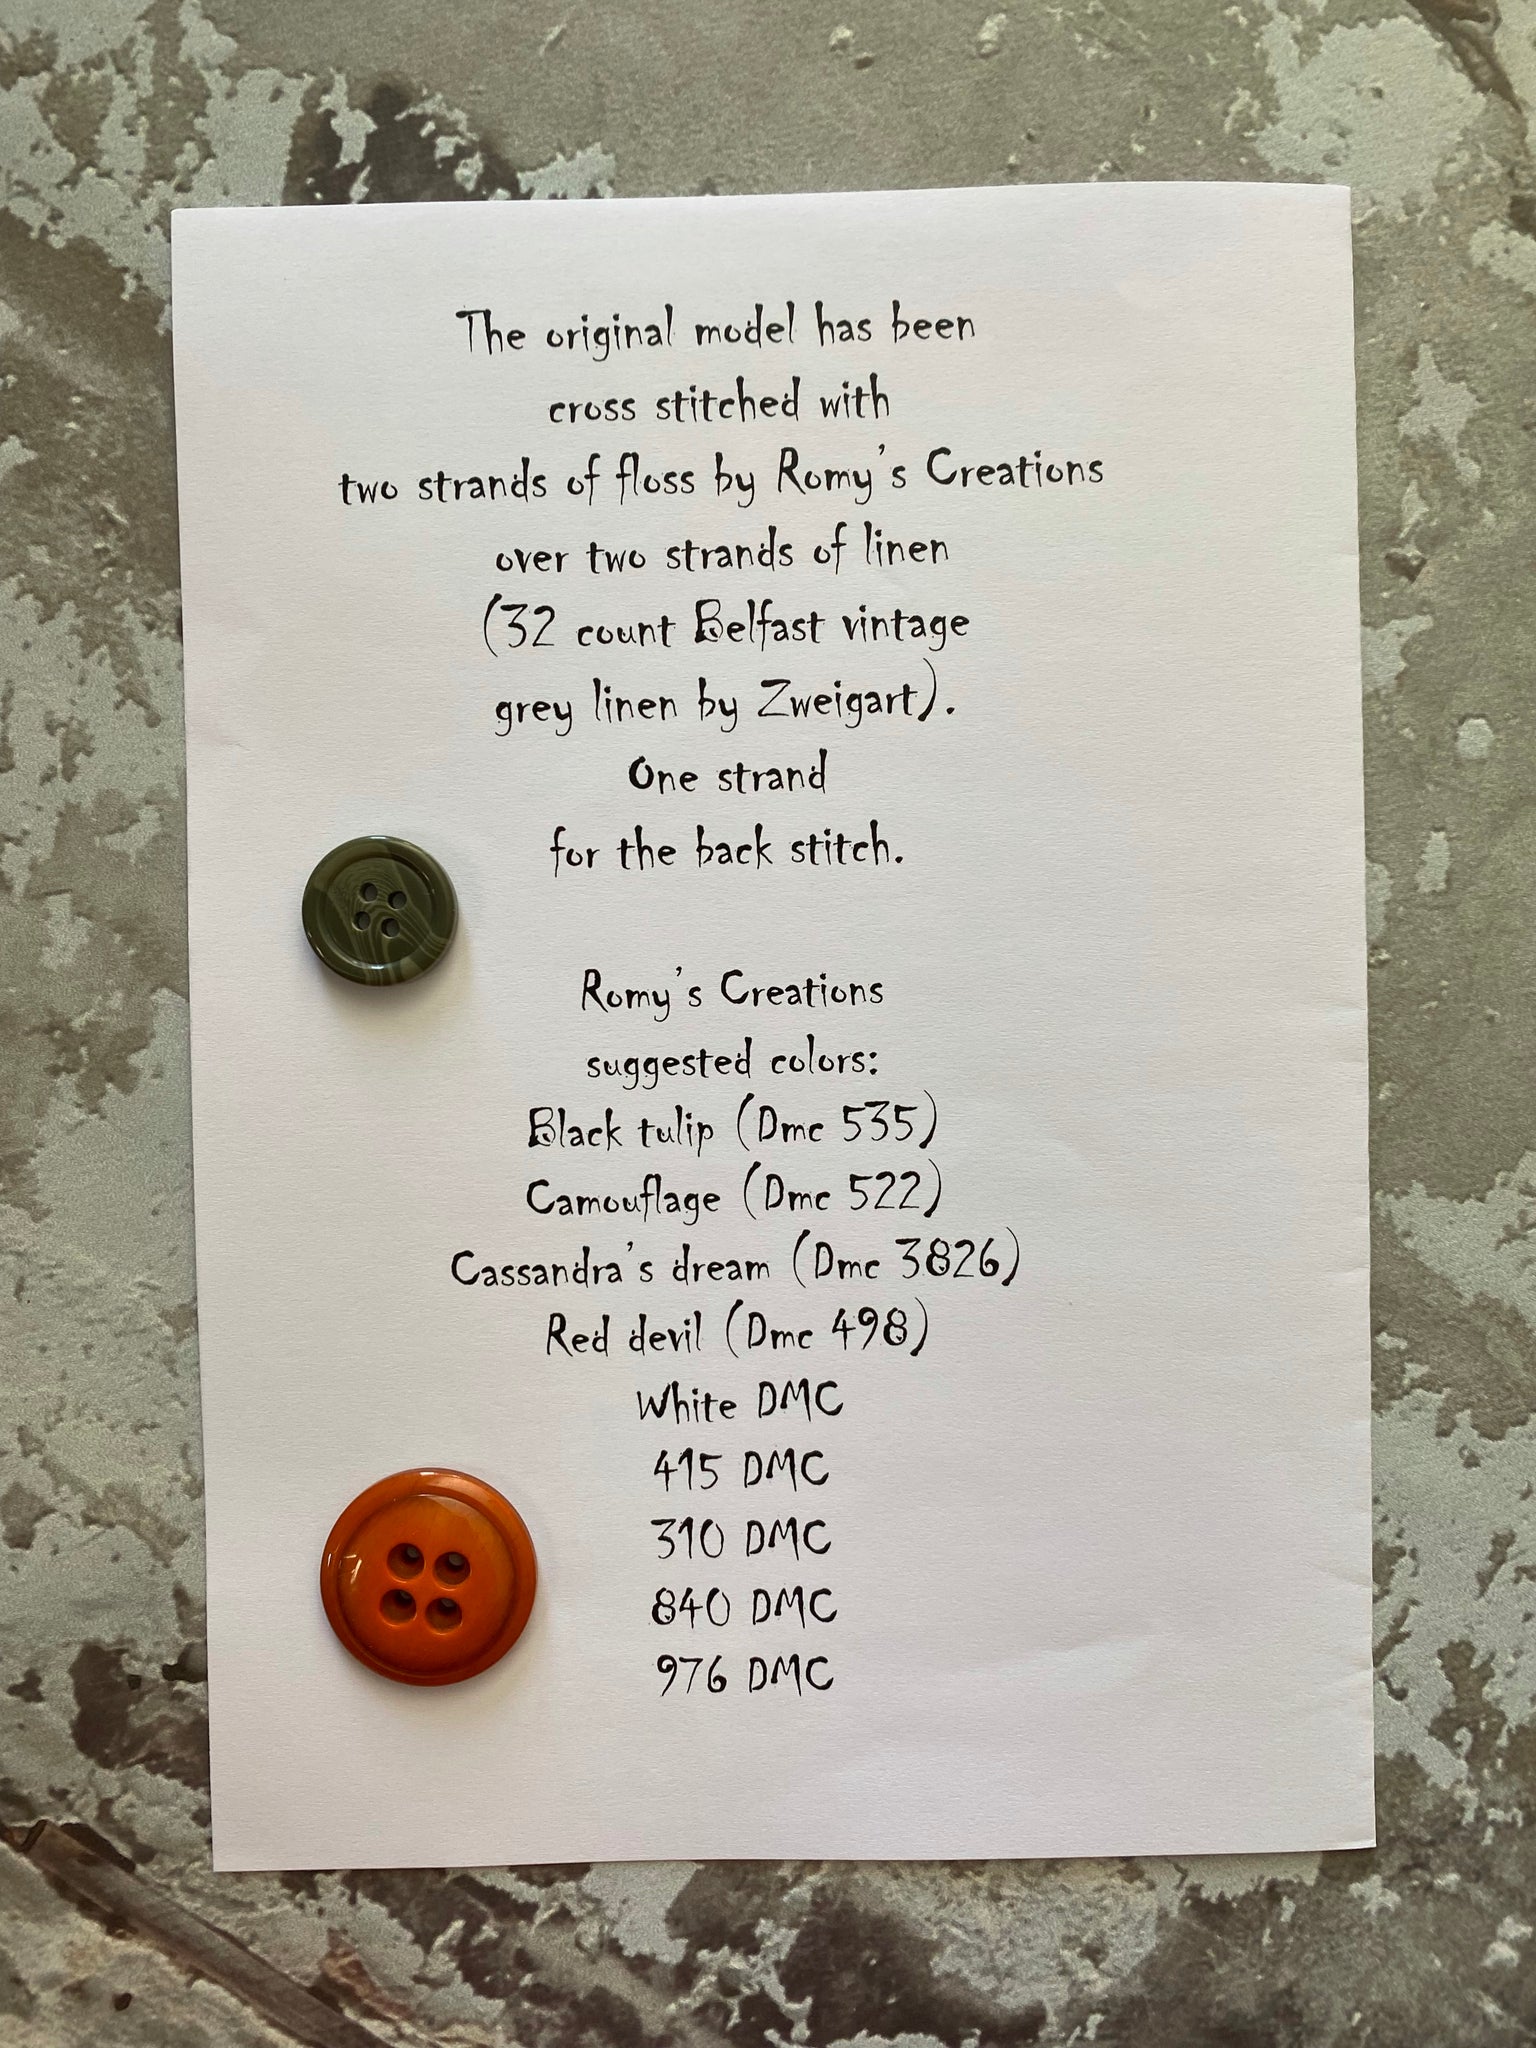 The original model has been
cross stitched with
two strands of floss by Romy's Creations
over two strands of linen
(32 count Belfast vintage
grey linen by Zweigart).
One strand
for the back stitch.
Romy's Creations
suggested colors:
Black tulip (Dmc 535)
Camouflage (Dmc 522)
Cassandra's dream (Dmc 3826)
Red devil (Dmc 498)
White DMC
415 DMC
310 DMC
840 DMC
976 DMC